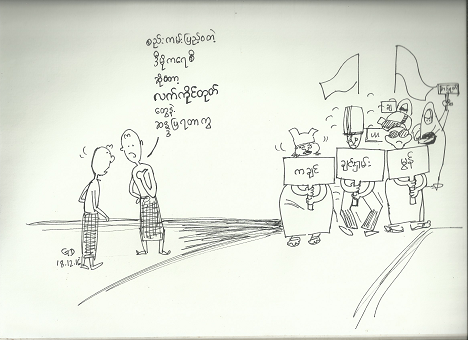 စည်းကမ်းပြည့်ဝတဲ့
ဒီမိုကရေစီ
ဆိုတာ
လက်ကိုင်တုတ်
တွေနဲ့
ဆန္ဒပြရတာကွ
ကချင်
ချင်း၊ရှမ်း
မွန်
18.12.16